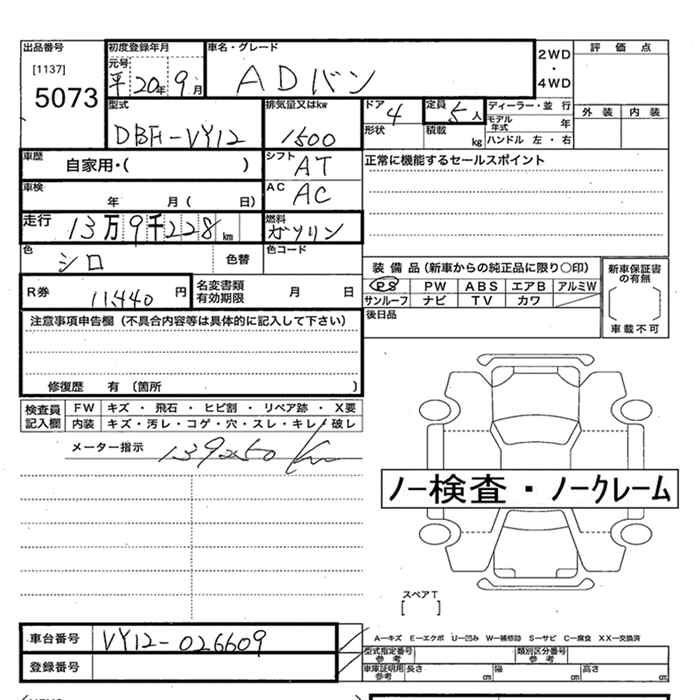 出品番号 初度登録年月 車名・グレード 2WD・4WD 評価点
[1137] 元号
5073 平20年9月 ADバン
型式 排気量又はkw ドア 定員 ディーラー・並行 外装 内装
DBF-VY12 1500 4 5人 モデル年式 年
形状 積載 kg ハンドル 左・右
車歴 自家用・( ) シフト AT 正常に機能するセールスポイント
車検 年 月( 日) AC AC
走行 13万9千228km 燃料 ガソリン
色 シロ 色替 色コード
装備品(新車からの純正品に限り○印) 新車保証書の有無
R券 11,440円 名変書類有効期限 月 日 PS PW ABS エアB アルミW
サンルーフ ナビ TV カワ
車載不可
注意事項申告欄(不具合内容等は具体的に記入して下さい) 後日品
修復歴 有 〔箇所 〕
検査員記入欄 FW キズ・飛石・ヒビ割・リペア跡・X要
内装 キズ・汚レ・コゲ・穴・スレ・キレ・破レ
メーター指示
ノー検査・ノークレーム
スペアT
[ ]
車台番号 VY12-026609 A−キズ E−エクボ U−凹み W−補修跡 S−サビ C−腐食 XX−交換済
型式指定番号 参考 類別区分番号 参考
登録番号 車庫証明用 参考 長さ cm 幅 cm 高さ cm